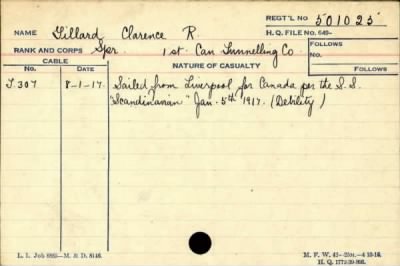 REGT'L No 501025
NAME Gillard Clarence R. H. Q. FILE No. 649-
RANK AND CORPS Spr. 1st. Can Tunnelling Co. FOLLOWS No.
CABLE NATURE OF CASUALTY FOLLOWS
No. DATE
T.307 8-1-17. Sailed from Liverpool for Canada per the S.S.
"Scandinavian" Jan. 5th 1917. (Debility)
L. L. Job 8885—M. & D. 8146. M. F. W. 42—
H. Q. 1772-39-893.